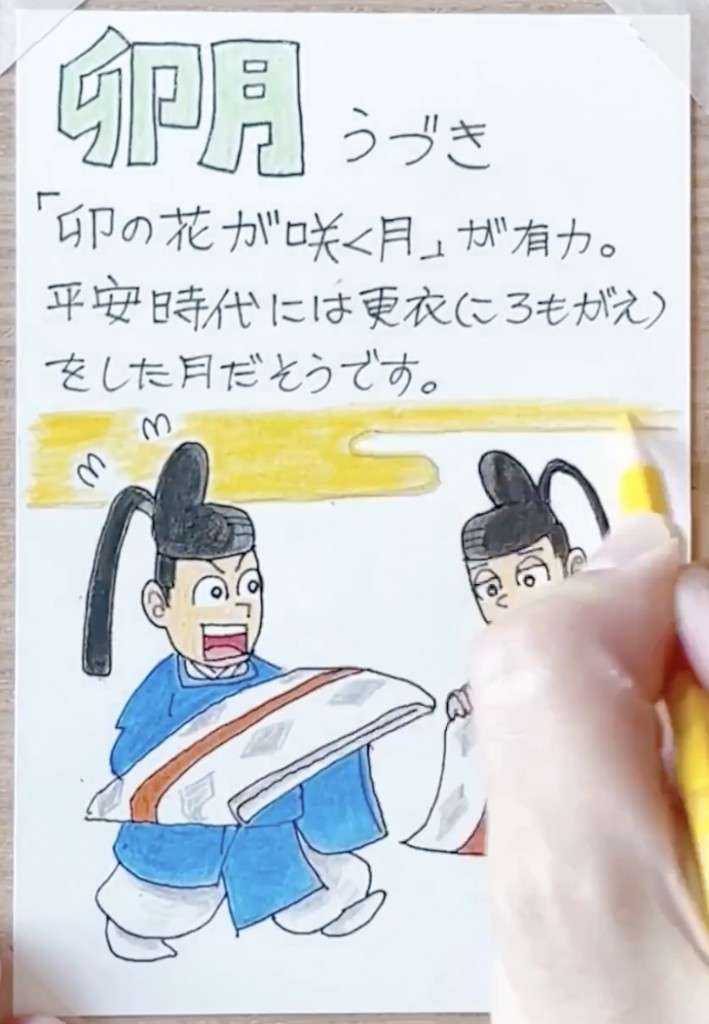 卯月 うづき
「卯の花が咲く月」が有力。
平安時代には更衣(ころもがえ)
をした月だそうです。